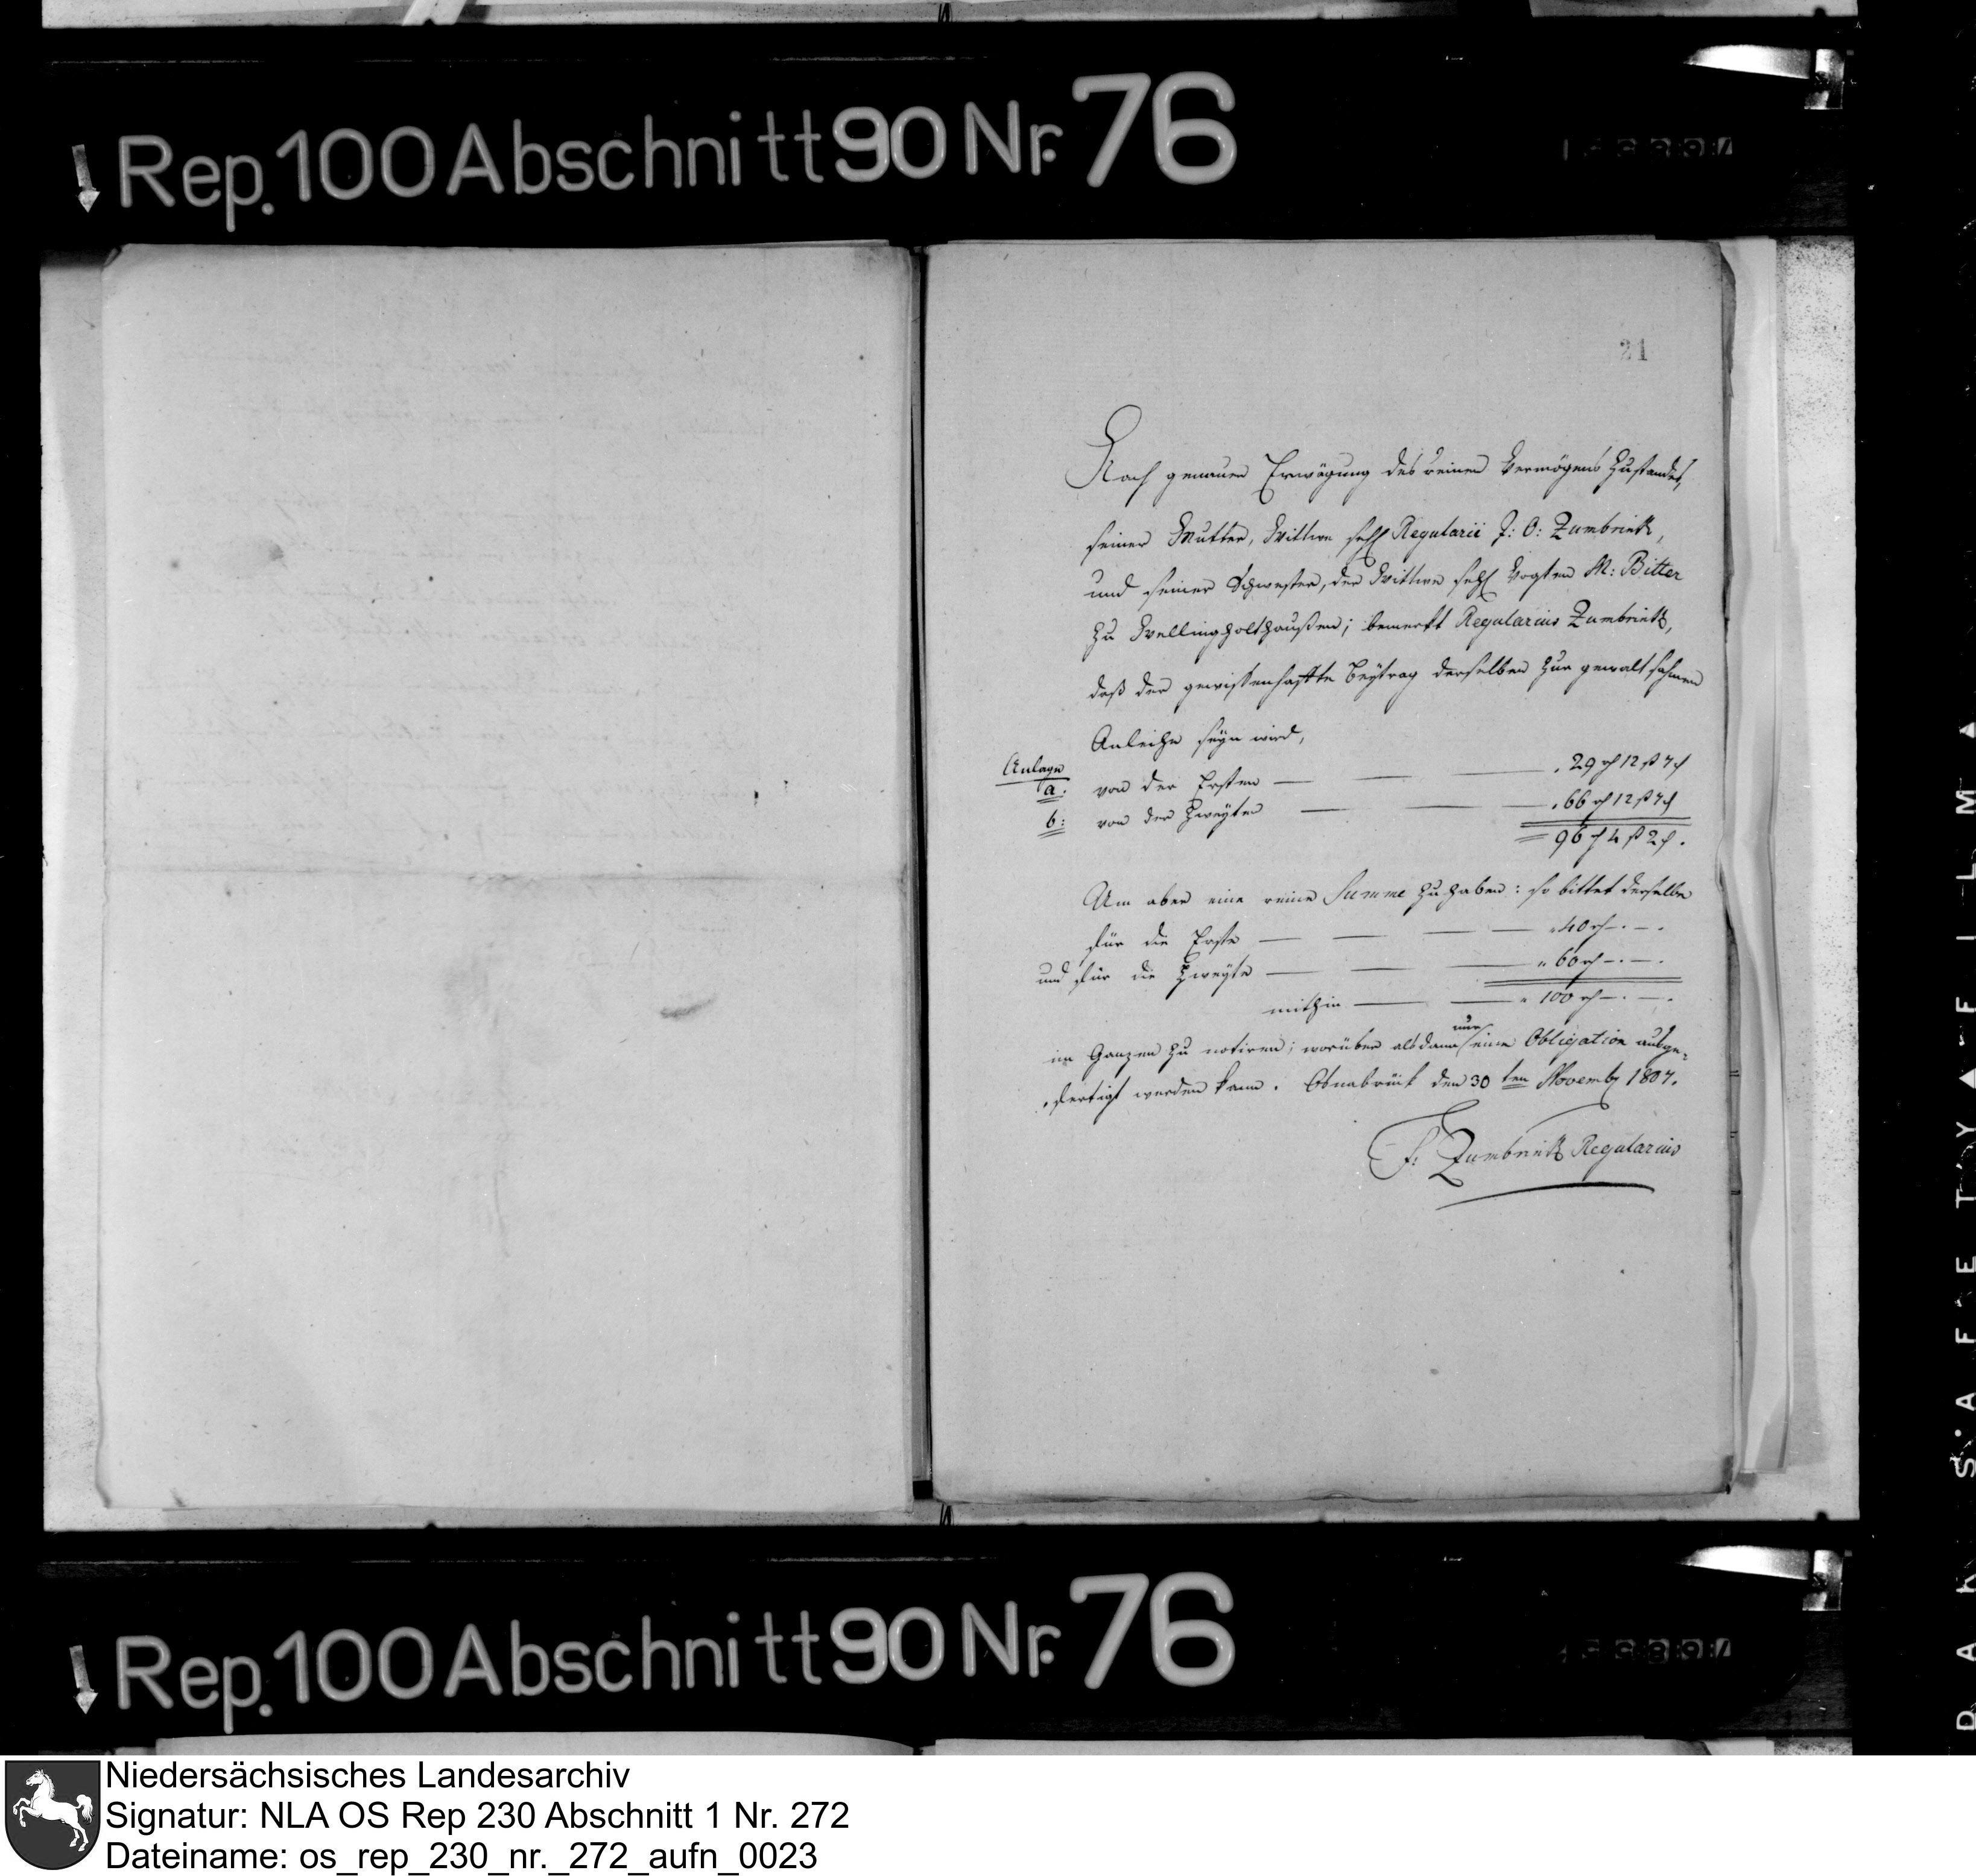 Rep. 100 Abschnitt 90 Nr. 76
21
Nach genauer Erwägung des reinen Vermögens Zustandes,
seiner Mutter, Wittwe sehl Regularii J: O: Zumbrink,
und seiner Schwester, der Wittwe sehl Vogten M: Bitter
zu Wellingholthaußen; bemerkt Regularius Zumbrink,
daß der gewissenhaffte Beÿtrag derselben zur gewaltsahmen
Anleihe seÿn wird,
Anlage
a. von der Ersten — — — 29 rt 12 ß 7 d
b: von der Zweÿten — — — 66 rt 12 ß 7 d
96 rt 4 ß 2 d.
Um aber eine reine Summe zu haben: so bittet derselbe
für die Erste — — — — 40 rt —. —.
und für die Zweÿte — — — 60 rt —. —.
mithin — — 100 rt —. —.
im Ganzen zu notiren; worüber alsdann nur eine Obligation ausge-
fertigt werden kann. Osnabrück den 30ten Novemb 1807.
F: Zumbrink Regularius
Rep. 100 Abschnitt 90 Nr. 76
Niedersächsisches Landesarchiv
Signatur: NLA OS Rep 230 Abschnitt 1 Nr. 272
Dateiname: os_rep_230_nr._272_aufn_0023